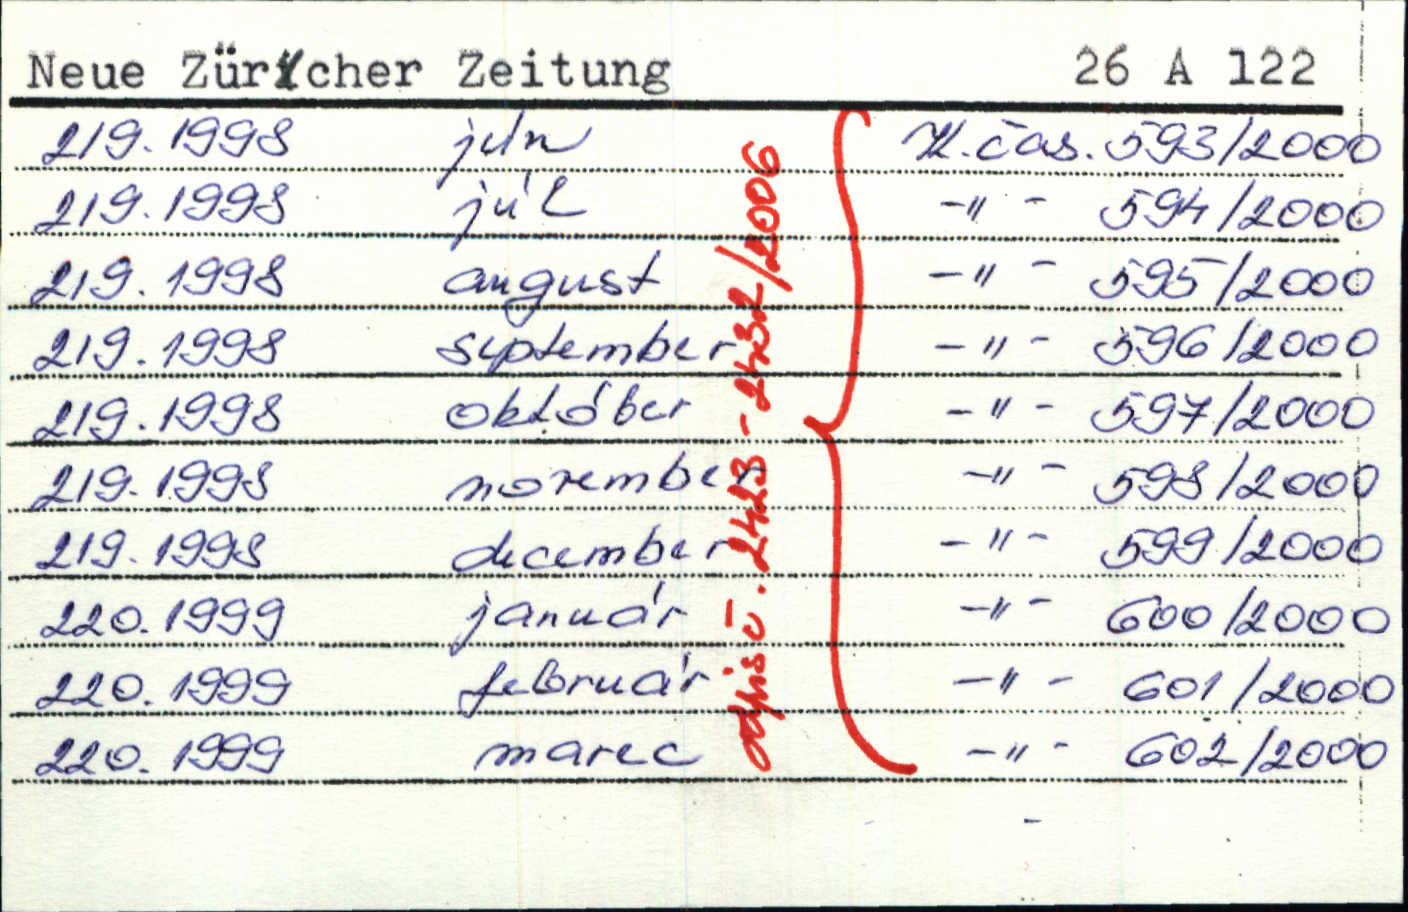 Neue Zürcher Zeitung 26 A 122
219. 1998 jún K. čas. 593/2000
219. 1998 júl -"- 594/2000
219. 1998 august -"- 595/2000
219. 1998 september -"- 596/2000
219. 1998 október -"- 597/2000
219. 1998 november -"- 598/2000
219. 1998 december -"- 599/2000
220. 1999 január -"- 600/2000
220. 1999 február -"- 601/2000
220. 1999 marec -"- 602/2000
odpis č. 2423-2432/2006